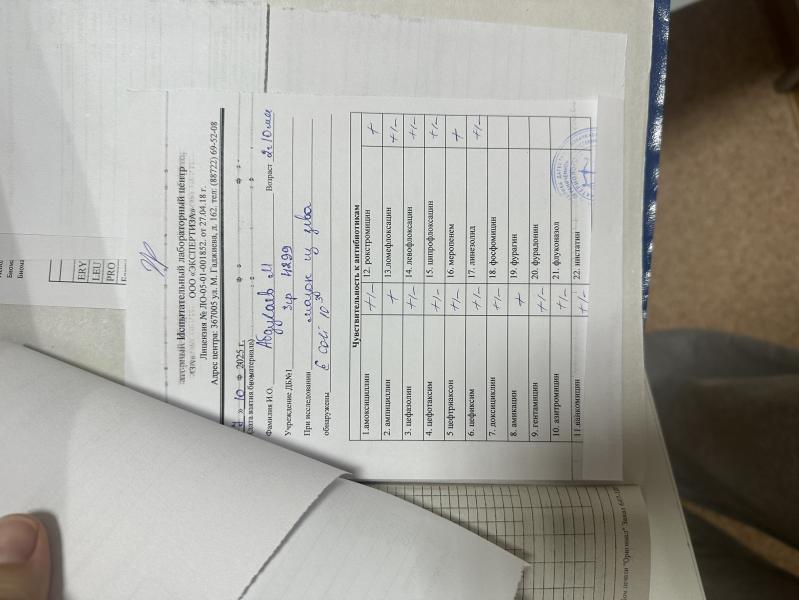 Испытательный лабораторный центр
ООО «ЭКСПЕРТИЗА»
Лицензия № ЛО-05-01-001852. от 27.04.18 г.
Адрес центра: 367005 ул. М. Гаджиева, д. 162. тел: (88722) 69-52-08
» 10 2025 г.
(Дата взятия биоматериала)
Фамилия И.О. М Возраст 2г10мес
Учреждение ДБ№1 4299
При исследовании мазок из зева
обнаружены E coli 10
Чувствительность к антибиотикам
1.амоксициллин +/- 12. рокстромицин +
2. ампициллин + 13.ломефлоксацин +/-
3. цефазолин +/- 14. левофлоксацин +/-
4. цефотаксим +/- 15. ципрофлоксацин +/-
5 цефтриаксон +/- 16. меропенем +
6. цефиксим +/- 17. линезолид +/-
7. доксициклин +/- 18. фосфомицин
8. амикацин + 19. фурагин
9. гентамицин +/- 20. фурадонин
10. азитромицин +/- 21. флуконазол
11.ванкомицин +/- 22. нистатин
ERY
LEU
PRO